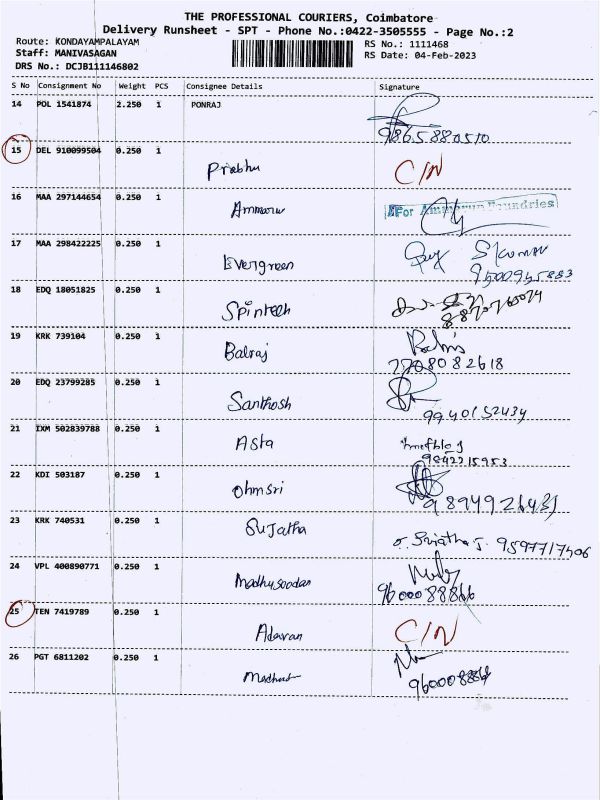 THE PROFESSIONAL COURIERS, Coimbatore
Delivery Runsheet - SPT - Phone No.:0422-3505555 - Page No.:2
Route: KONDAYAMPALAYAM
Staff: MANIVASAGAN
DRS No.: DCJB111146802
RS No.: 1111468
RS Date: 04-Feb-2023
S No Consignment No Weight PCS Consignee Details Signature
14 POL 1541874 2.250 1 PONRAJ
9865880510
15 DEL 910099504 0.250 1
Prabhu C/N
16 MAA 297144654 0.250 1
For Foundries
17 MAA 298422225 0.250 1
Evergreen
9500945883
18 EDQ 18051825 0.250 1
Spintech
19 KRK 739104 0.250 1
Balraj
2208082618
20 EDQ 23799285 0.250 1
Santhosh
9940152434
21 IXM 502839788 0.250 1
Asta
9842215953
22 KDI 503187 0.250 1
Ohmsri
23 KRK 740531 0.250 1
Sujatha
9597717406
24 VPL 400890771 0.250 1
Madhusoodan
9600088866
25 TEN 7419789 0.250 1
C/N
26 PGT 6811202 0.250 1